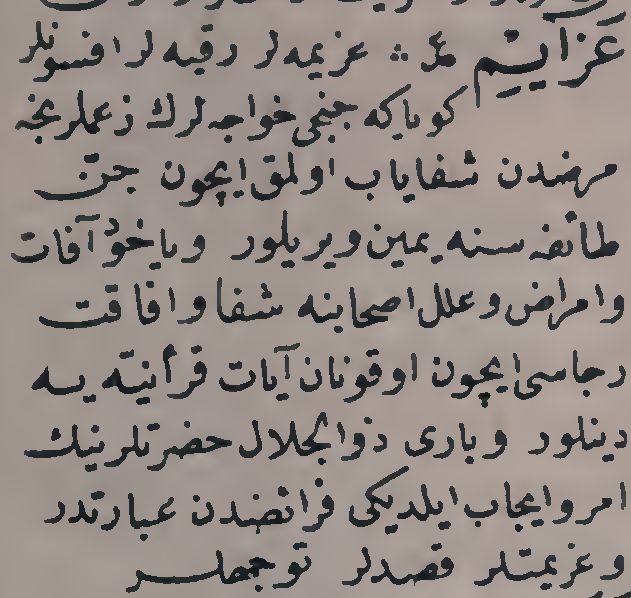 عَزَآيِمْ عل ؞ عزيمه لر رقيه لر افسونلر
كوياكه جنجى خواجه لرك زعملرنجه
مرضدن شفاياب اولمق ايچون جنّ
طائفه سنه يمين ويريلور وياخود آفات
وامراض وعلل اصحابنه شفا وافاقت
رجاسى ايچون اوقونان آيات قرأنيّه يه
دينلور وبارى ذوالجلال حضرتلرينك
امر وايجاب ايلديكى فرائضدن عبارتدر
وعزيمتلر قصدلر توجهلر